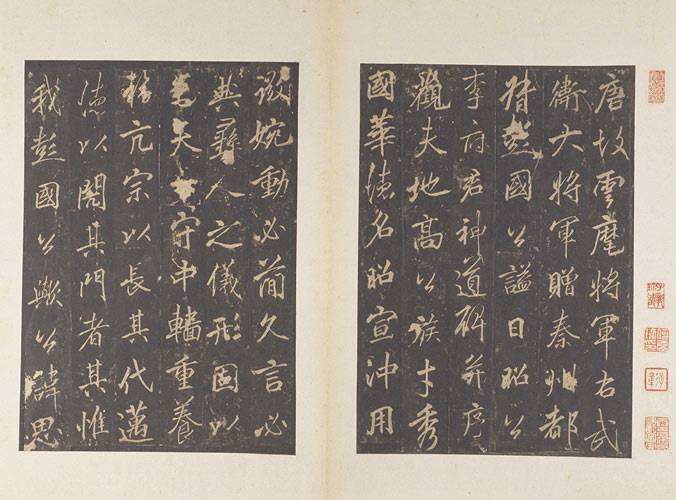 唐故雲麾將軍右武
衛大將軍贈秦州都
督彭國公謚曰昭公
李府君神道碑并序
觀夫地高公族才秀
國華德名昭宣沖用
微婉動必簡久言必
典彝人之儀形固以
守中轓重養
福亢宗以長其代邁
德以閱其門者其惟
我彭國公歟公諱思